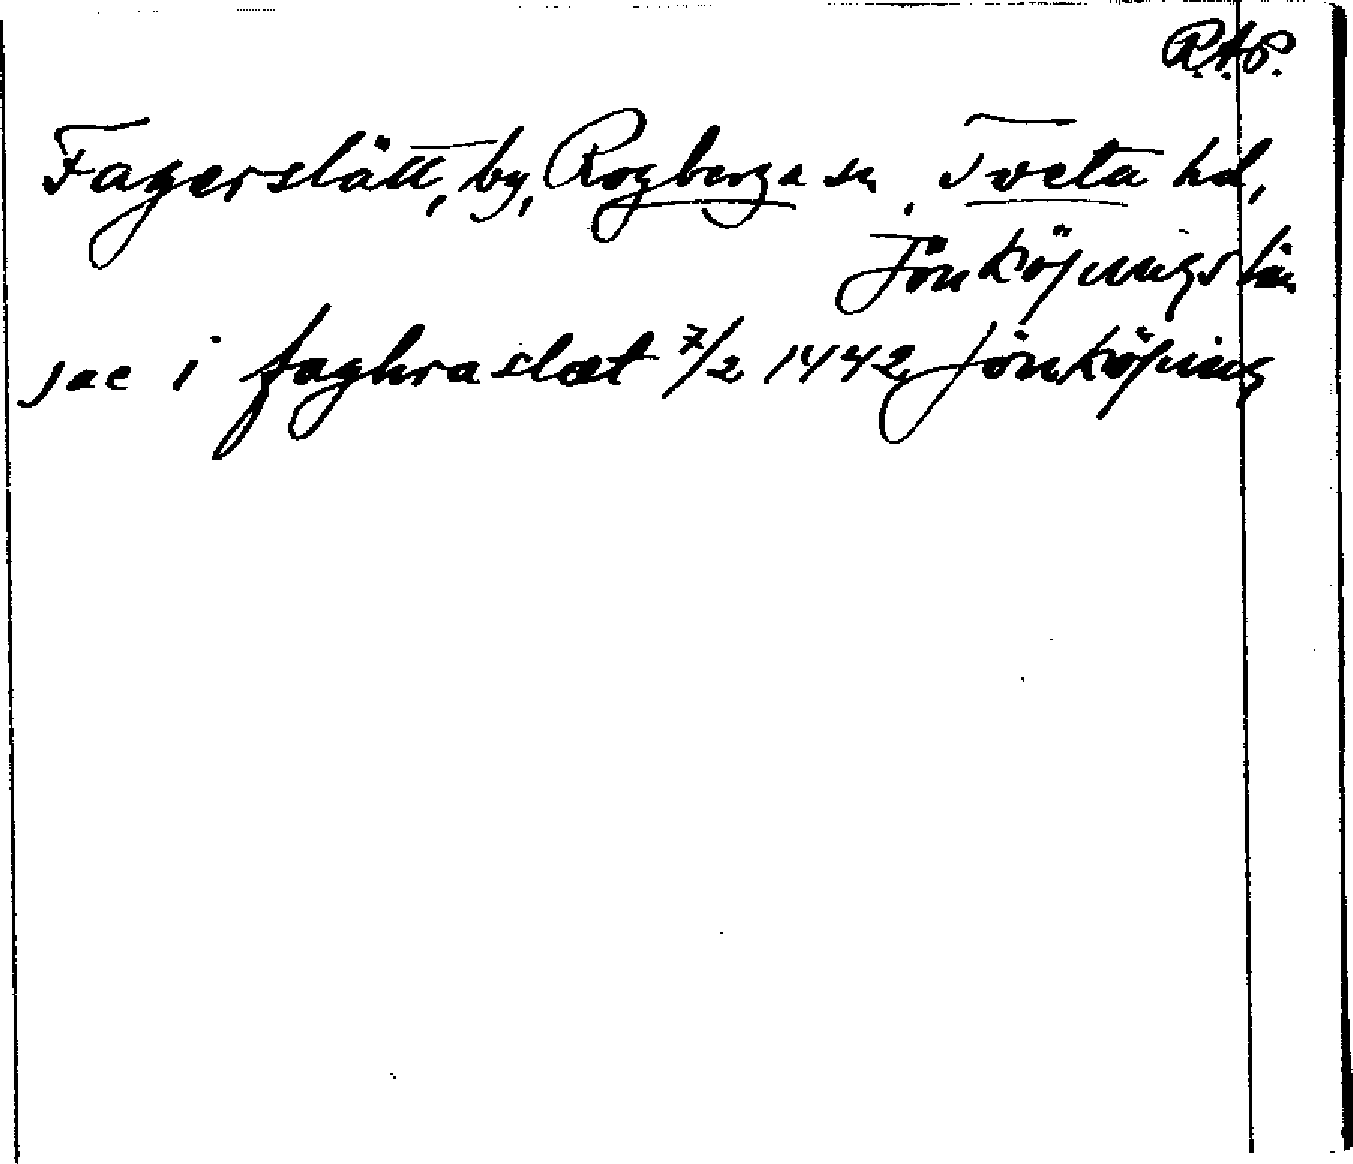 R.A.P.
Fagerslätt, by, Rogberga sn, Tveta hd,
Jönköpings län
jac i faghraslæt 7/2 1442, Jönköping